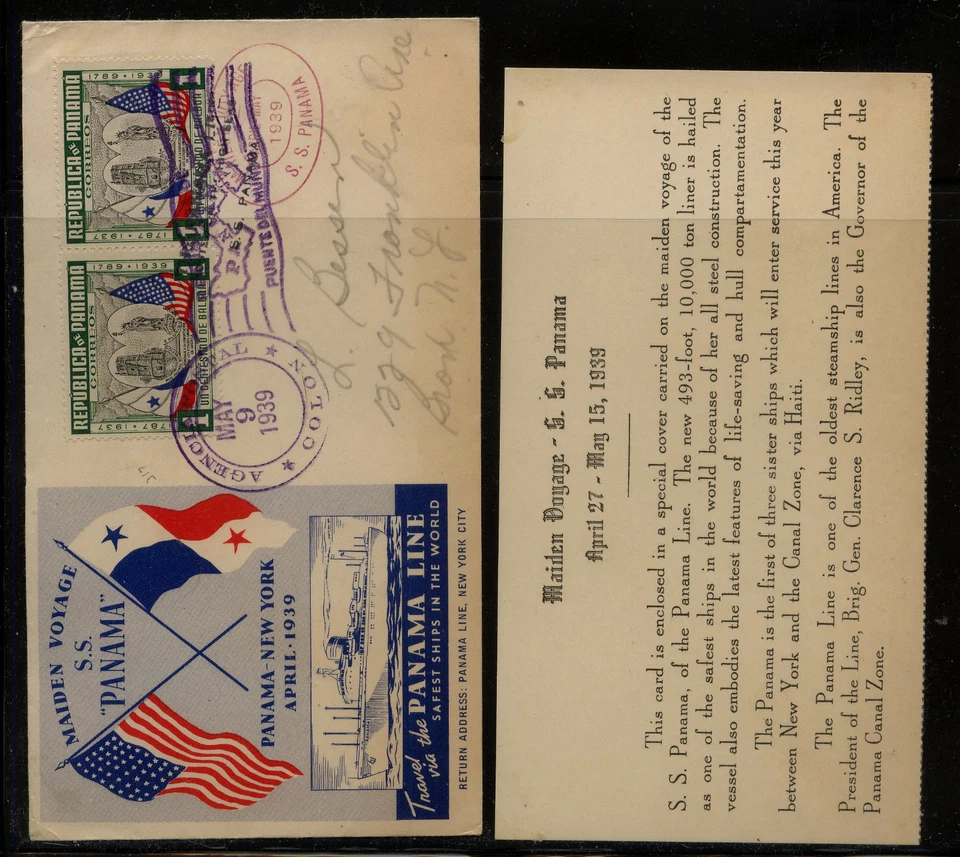 MAIDEN VOYAGE
S.S.
"PANAMA"
PANAMA-NEW YORK
APRIL · 1939
Travel via the PANAMA LINE
SAFEST SHIPS IN THE WORLD
RETURN ADDRESS: PANAMA LINE, NEW YORK CITY
1789 • 1939
REPÚBLICA DE PANAMA
CORREOS
1787 1937
UN CENTESIMO DE BALBOA
1
1789 • 1939
REPÚBLICA DE PANAMA
CORREOS
1787 1937
DE BALBOA
1
AGENCIA POSTAL
MAY
9
1939
COLON
PUENTE DEL MUNDO
MAY
1939
S. S. PANAMA
L. Besser
Franklin Ave
Bronx N. Y.
Maiden Voyage - S. S. Panama
April 27 - May 15, 1939
This card is enclosed in a special cover carried on the maiden voyage of the
S. S. Panama, of the Panama Line. The new 493-foot, 10,000 ton liner is hailed
as one of the safest ships in the world because of her all steel construction. The
vessel also embodies the latest features of life-saving and hull compartamentation.
The Panama is the first of three sister ships which will enter service this year
between New York and the Canal Zone, via Haiti.
The Panama Line is one of the oldest steamship lines in America. The
President of the Line, Brig. Gen. Clarence S. Ridley, is also the Governor of the
Panama Canal Zone.